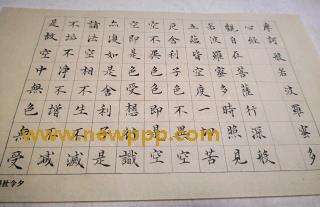 摩訶般若波羅蜜多
心經
觀自在菩薩行深般
若波羅蜜多時照見
五蘊皆空度一切苦
厄舍利子色不異空
空不異色色即是空
空即是色受想行識
亦復如是舍利子是
諸法空相不生不滅
不垢不淨不增不減
是故空中無色無受
www.newppp.com